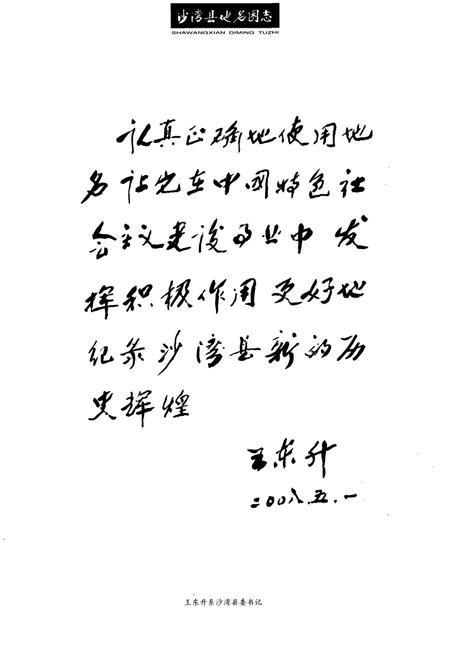 沙湾县地名图志
SHAWANGXIAN DIMING TUZHI
认真正确地使用地
名 让它在中国特色社
会主义建设事业中 发
挥积极作用 更好地
纪录沙湾县新的历
史辉煌
王东升
二00八.五.一
王东升系沙湾县委书记